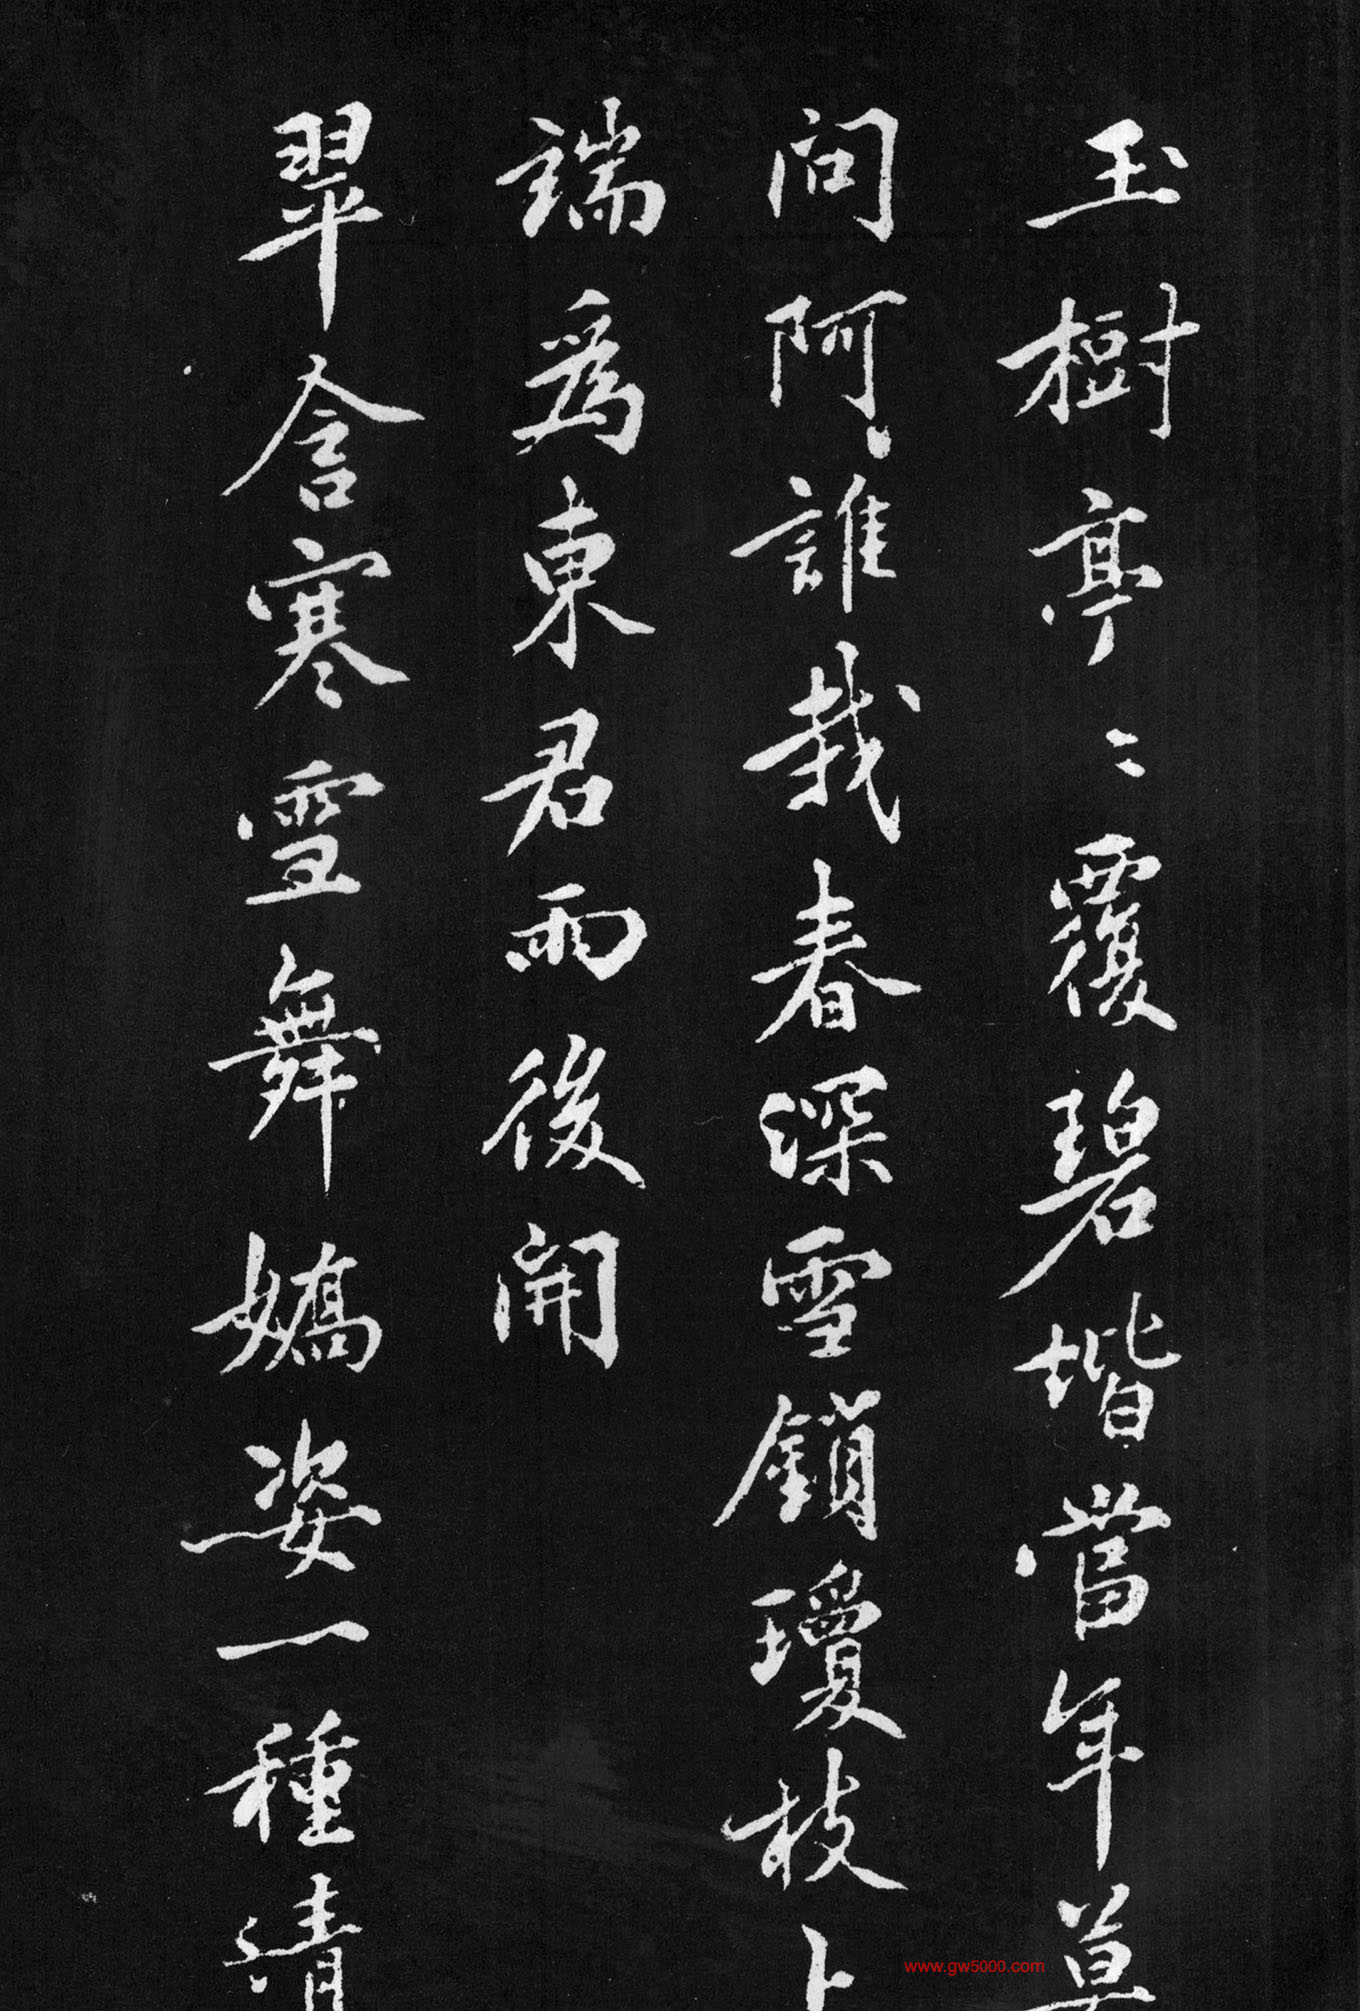 玉樹亭〻覆碧堦當年莫
問阿誰栽春深雪鎖瓊枝上
端爲東君雨後開
翠含寒雪舞嬌姿一種清
www.gw5000.com